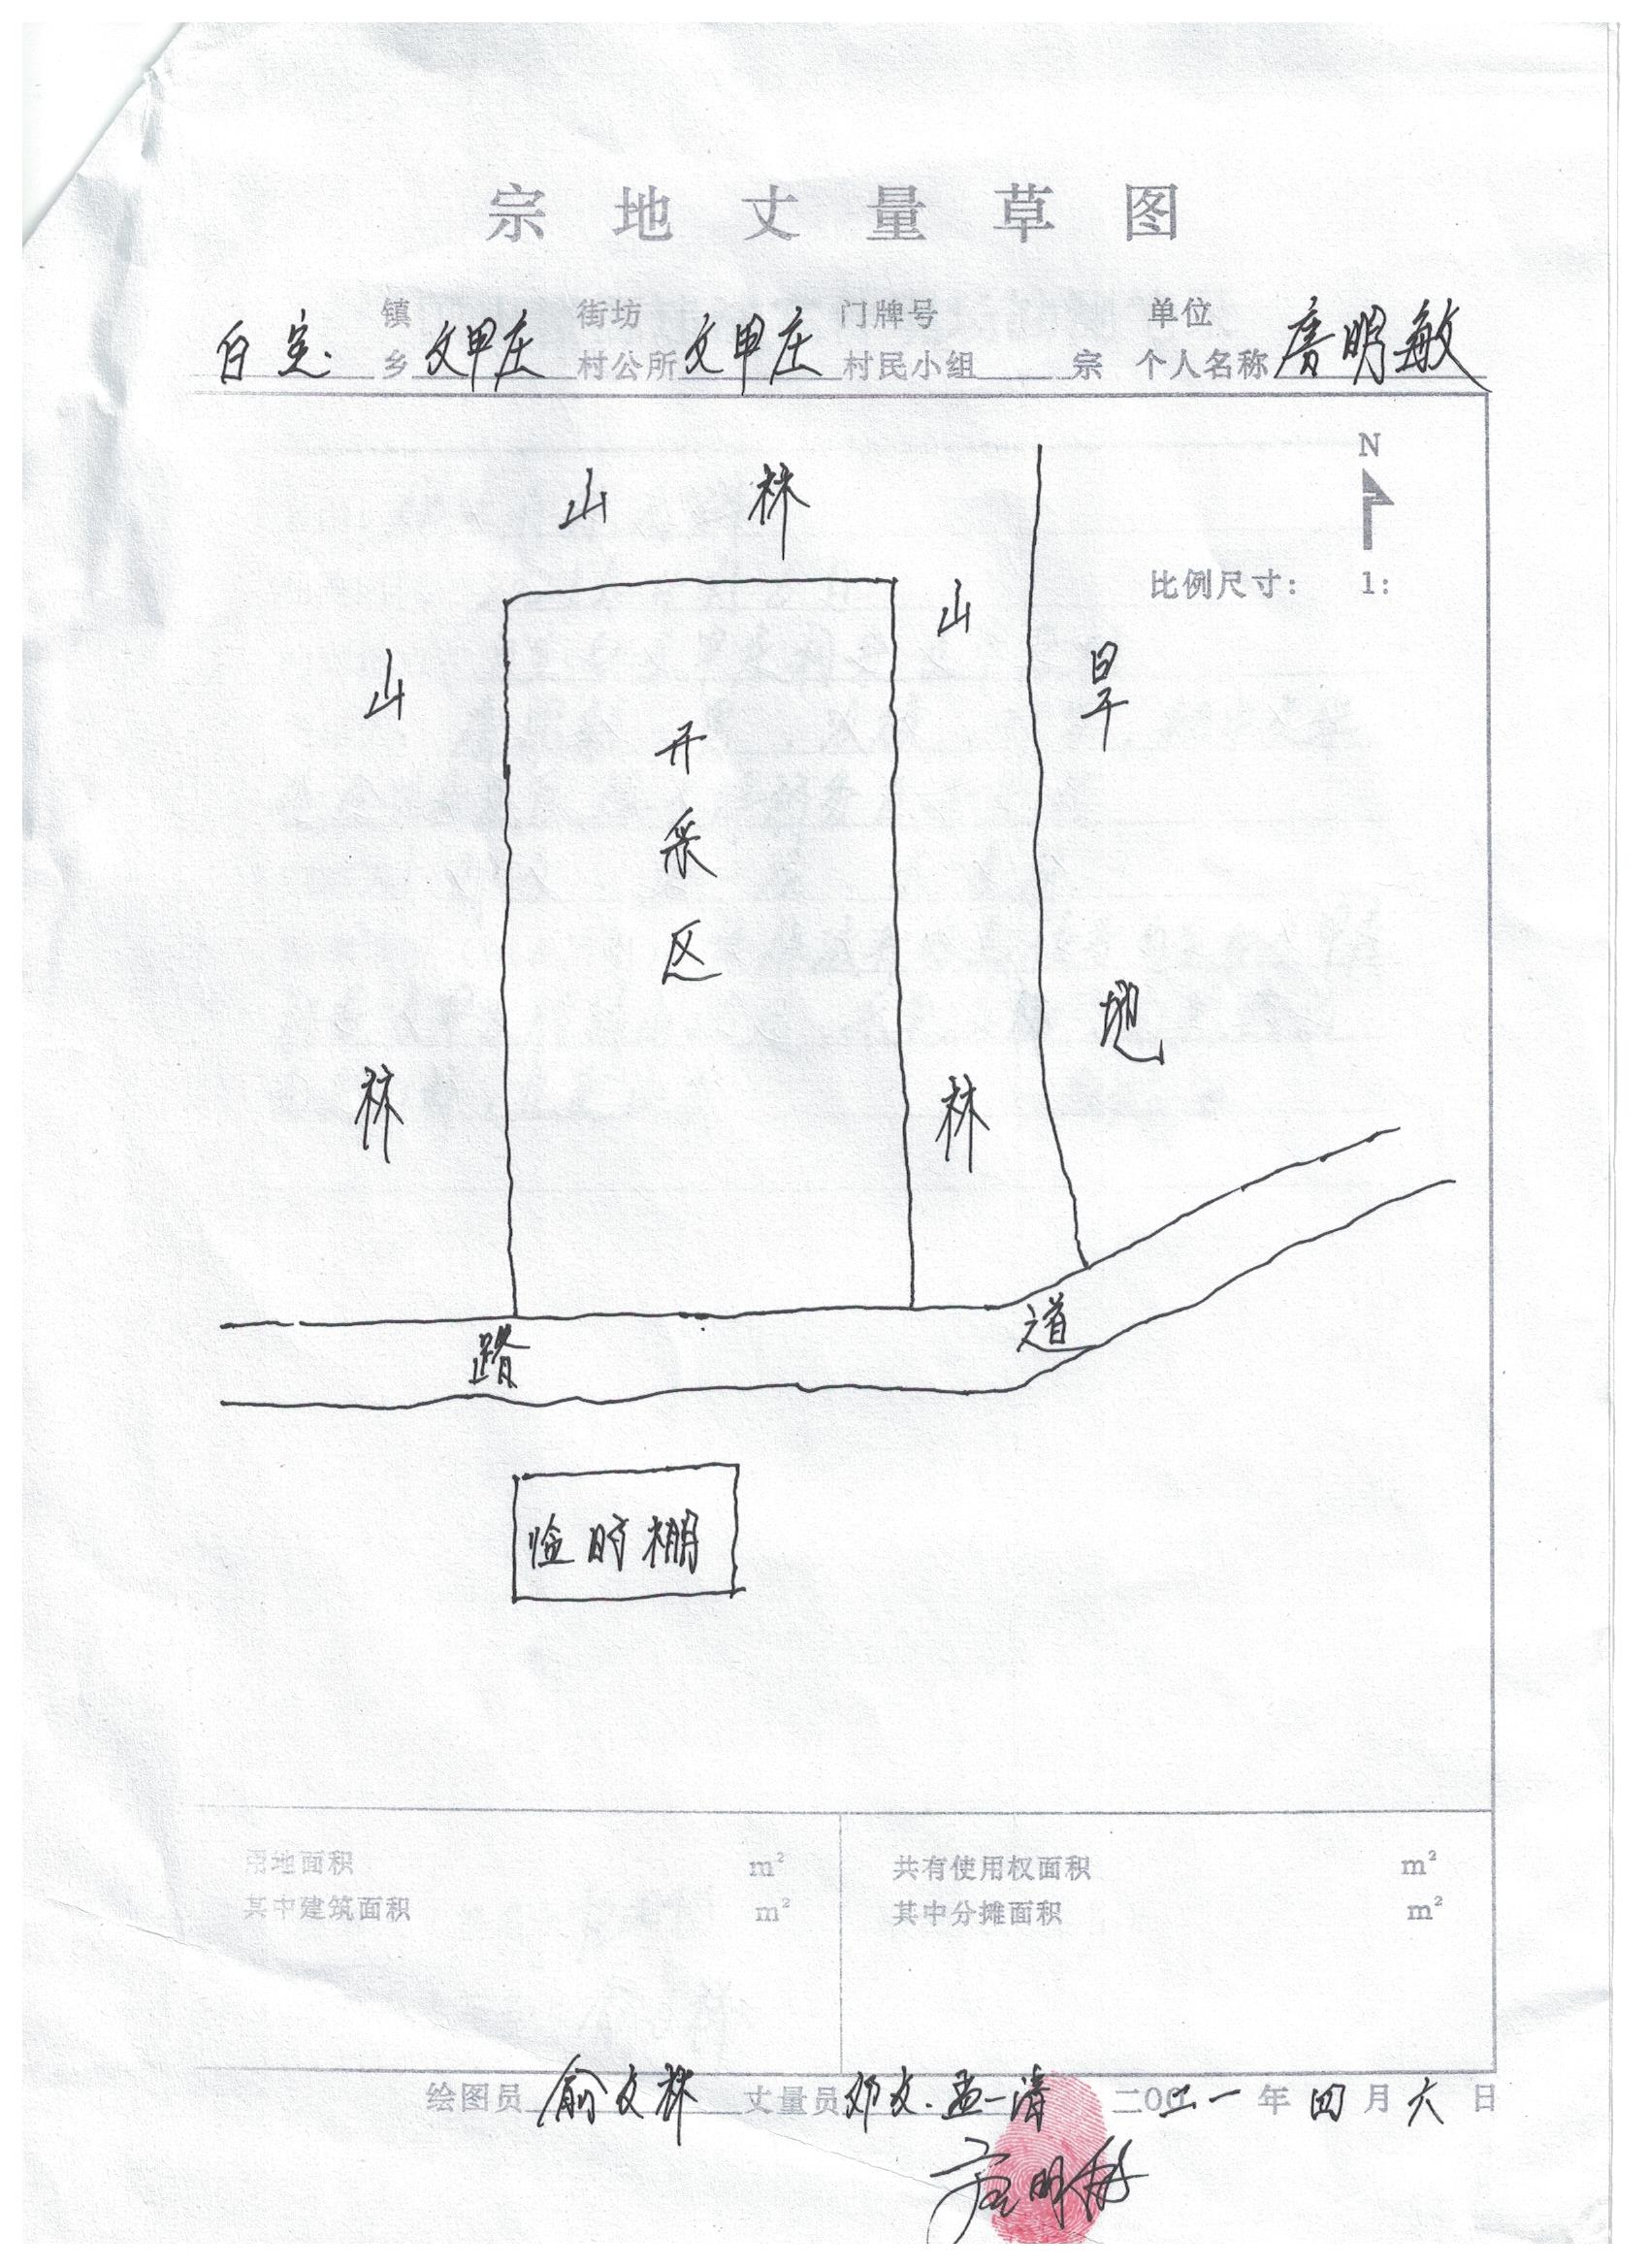 宗地丈量草图
镇 街坊 门牌号 单位
白 乡 文甲庄 村公所 文甲庄 村民小组 宗 个人名称 唐明敏
N
山 林
比例尺寸: 1:
山
旱
山
开
采
区
地
林
林
道
路
临时棚
用地面积 m² 共有使用权面积 m²
其中建筑面积 m² 其中分摊面积 m²
绘图员 俞文林 丈量员 邓文.孟一清 二0 一 年 四 月 六 日
唐明敏